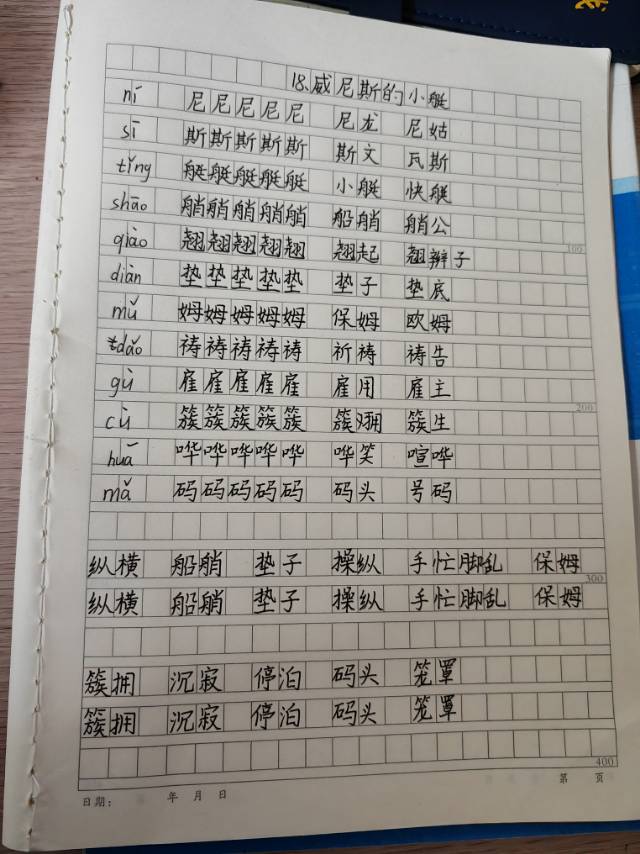 18.威尼斯的小艇
ní 尼尼尼尼尼 尼龙 尼姑
sī 斯斯斯斯斯 斯文 瓦斯
tǐng 艇艇艇艇艇 小艇 快艇
shāo 艄艄艄艄艄 船艄 艄公
qiào 翘翘翘翘翘 翘起 翘辫子
diàn 垫垫垫垫垫 垫子 垫底
mǔ 姆姆姆姆姆 保姆 欧姆
dǎo 祷祷祷祷祷 祈祷 祷告
gù 雇雇雇雇雇 雇用 雇主
cù 簇簇簇簇簇 簇拥 簇生
huā 哗哗哗哗哗 哗笑 喧哗
mǎ 码码码码码 码头 号码
纵横 船艄 垫子 操纵 手忙脚乱 保姆
纵横 船艄 垫子 操纵 手忙脚乱 保姆
簇拥 沉寂 停泊 码头 笼罩
簇拥 沉寂 停泊 码头 笼罩
100
200
300
400
日期: 年 月 日 第 页